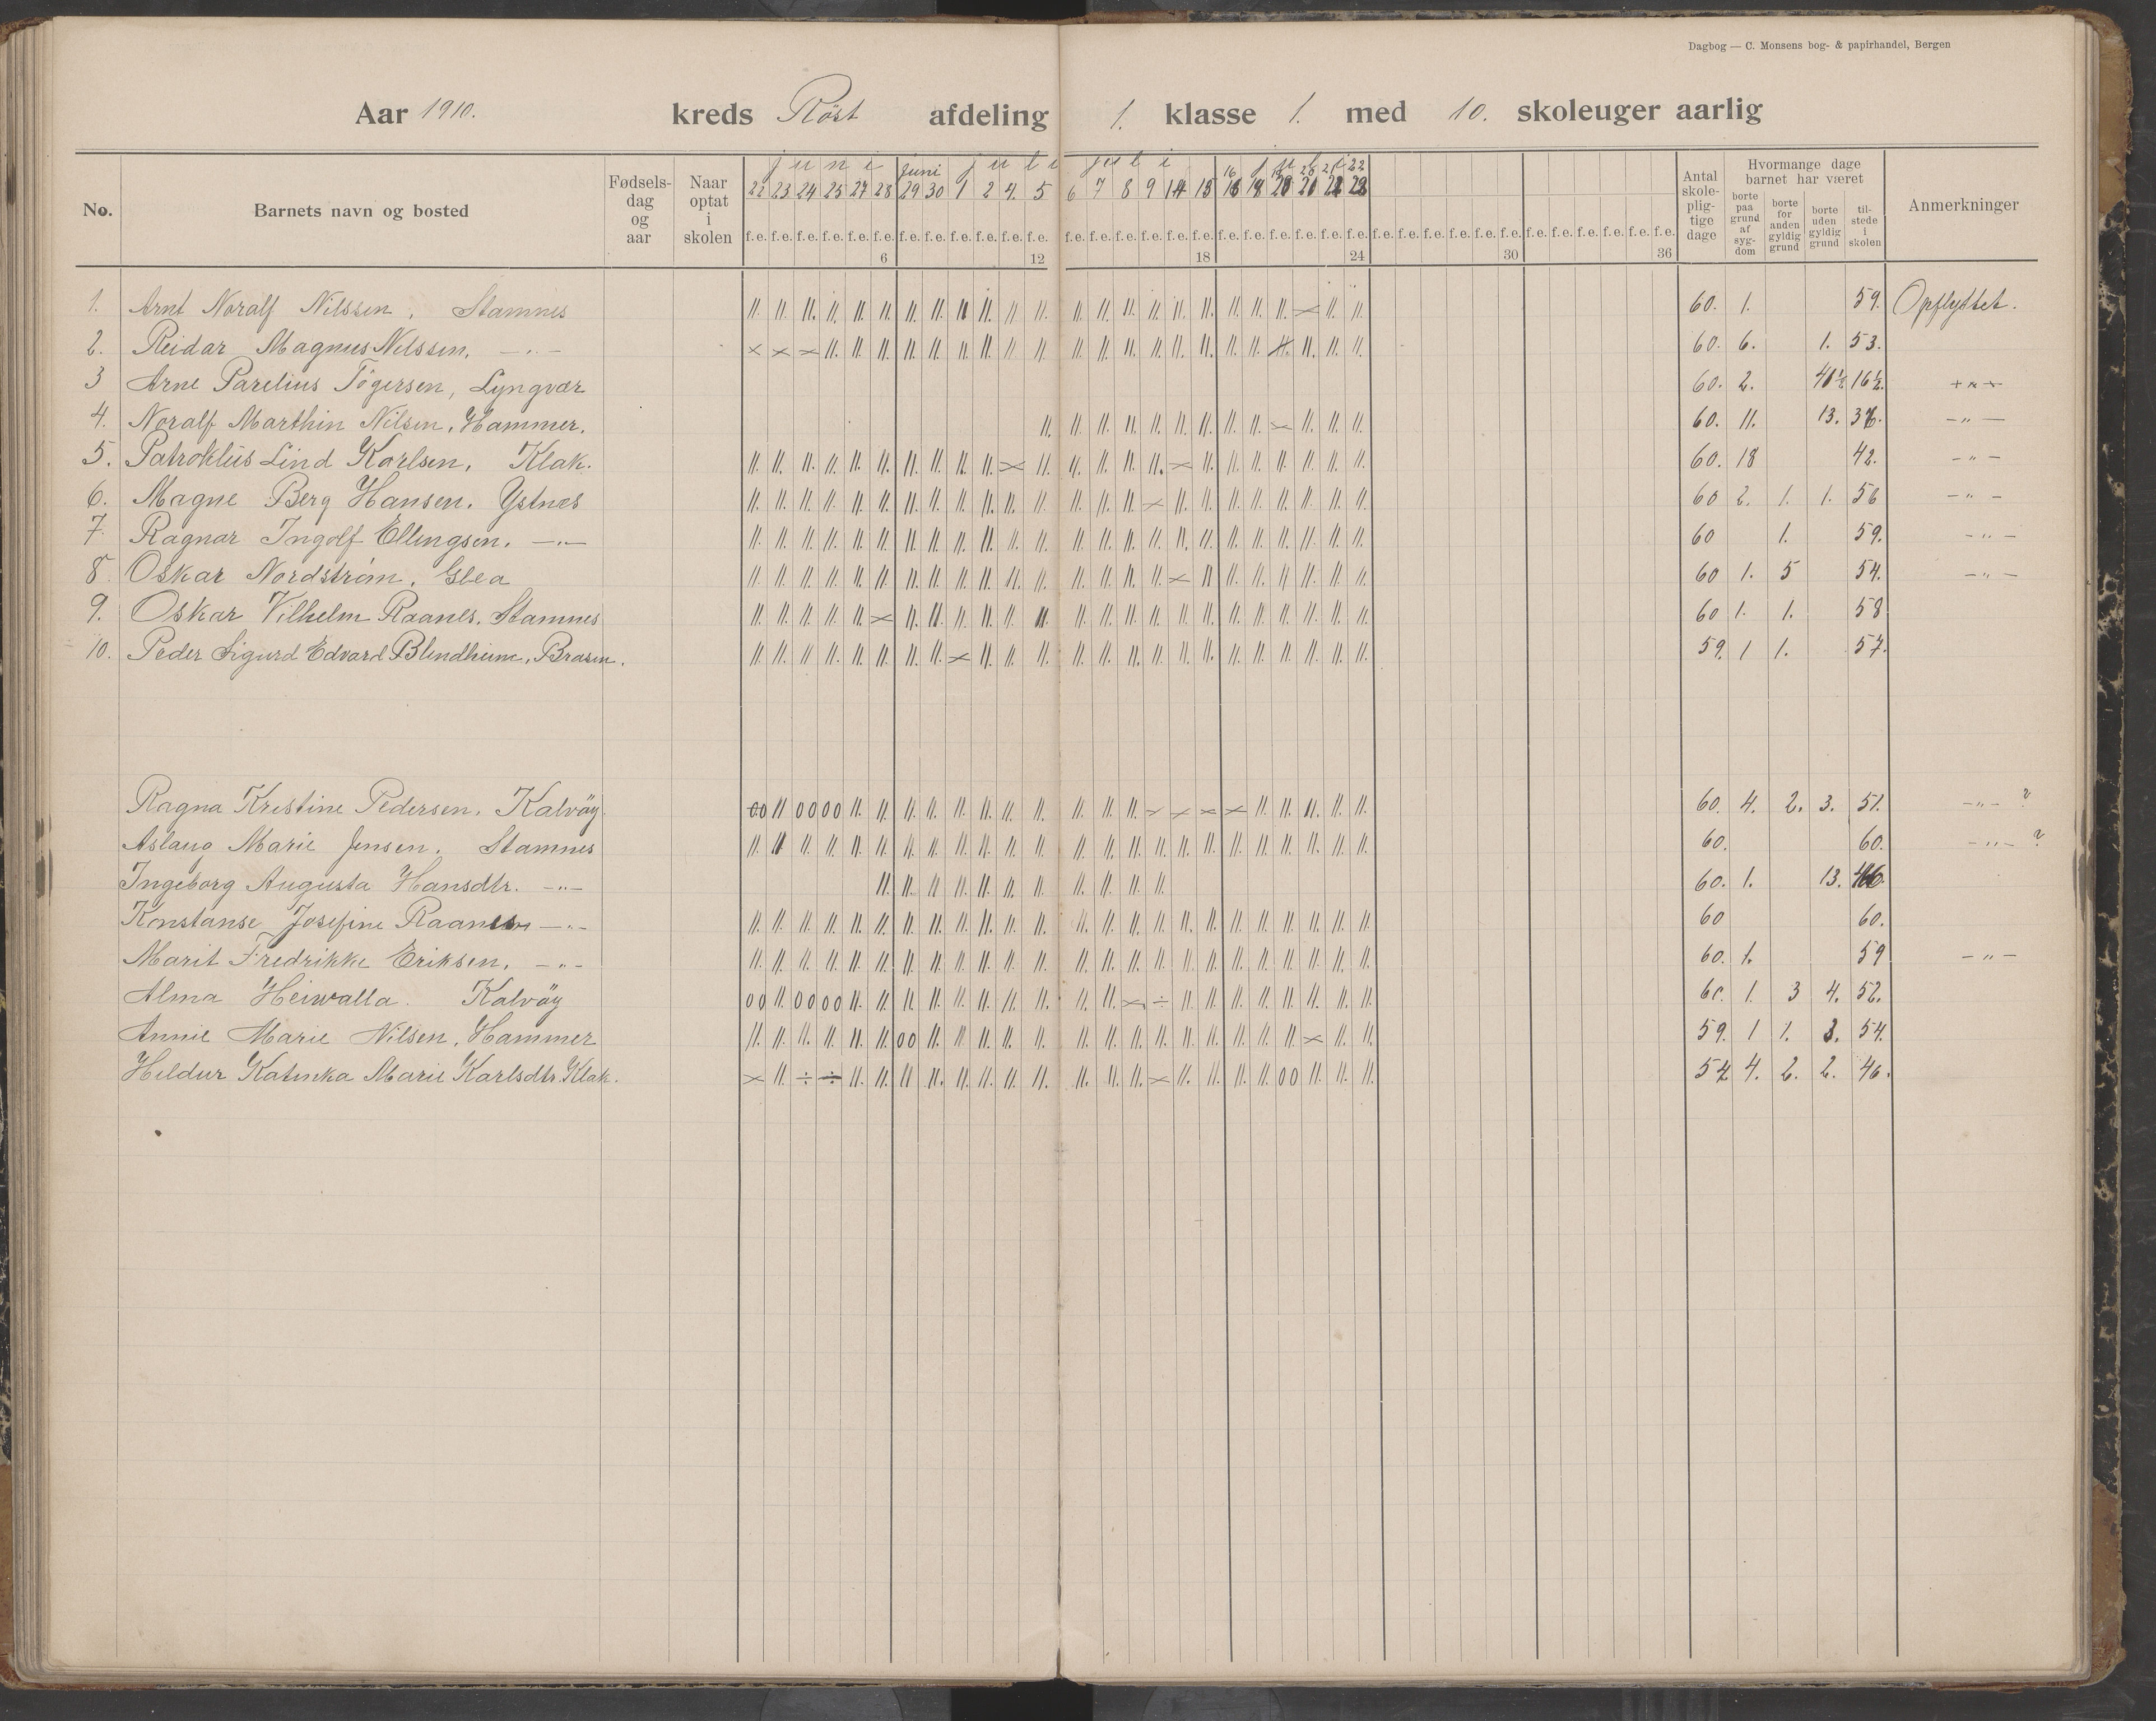 Dagbog — C. Monsens bog- & papirhandel, Bergen
Aar 1910. kreds Röst afdeling 1. klasse 1. med 10. skoleuger aarlig
No. Barnets navn og bosted Fødsels-dag og aar Naar optat i skolen juni juni juli juli juli Antal skole-plig-tige dage Hvormange dage barnet har været Anmerkninger
borte paa grund af syg-dom borte for anden gyldig grund borte uden gyldig grund til-stede i skolen
22 23 24 25 27 28 29 30 1 2 4. 5 6 7 8 9 14 15
f.e. f.e. f.e. f.e. f.e. f.e. f.e. f.e. f.e. f.e. f.e. f.e. f.e. f.e. f.e. f.e. f.e. f.e. f.e. f.e. f.e. f.e. f.e. f.e. f.e. f.e. f.e. f.e. f.e. f.e. f.e. f.e. f.e. f.e. f.e. f.e.
6 12 18 24 30 36
1. Arnt Noralf Nilssen, Stamnes 60. 1. 59. Opflyttet.
2. Reidar Magnus Nilssen, —„— 60. 6. 1. 53.
3 Arne Parelius Tögersen, Lyngvær 60. 2. 16½
4. Noralf Marthin Nilsen, Hammer. 60. 11. 13. 36. —„—
5. Patroklus Lind Karlsen, Klak. 60. 18 42. —„—
6. Magne Berg Hansen. Ystnes 60 2. 1. 1. 56 —„—
7. Ragnar Ingolf Ellingsen. —„— 60 1. 59. —„—
8. Oskar Nordström, Glea 60 1. 5 54. —„—
9. Oskar Vilhelm Raanes, Stamnes 60 1. 1. 58
10. Peder Sigurd Edvard Blindheim, Brasen. 59. 1 1. 57.
Ragna Kristine Pedersen, Kalvöy. 60. 4. 2. 3. 51. —„— ?
Aslaug Marie Jensen. Stamnes 60. 60. —„— ?
Ingeborg Augusta Hansdtr. —„— 60. 1. 13. 46.
Konstanse Josefine Raanes —„— 60 60.
Marit Fredrikke Eriksen, —„— 60. 1. 59 —„—
Alma Heiwalla. Kalvöy 60. 1. 3 4. 52.
Annie Marie Nilsen, Hammer 59. 1 1. 3. 54.
Hildur Katinka Marie Karlsdtr. Klak. 54 4. 2. 2. 46.